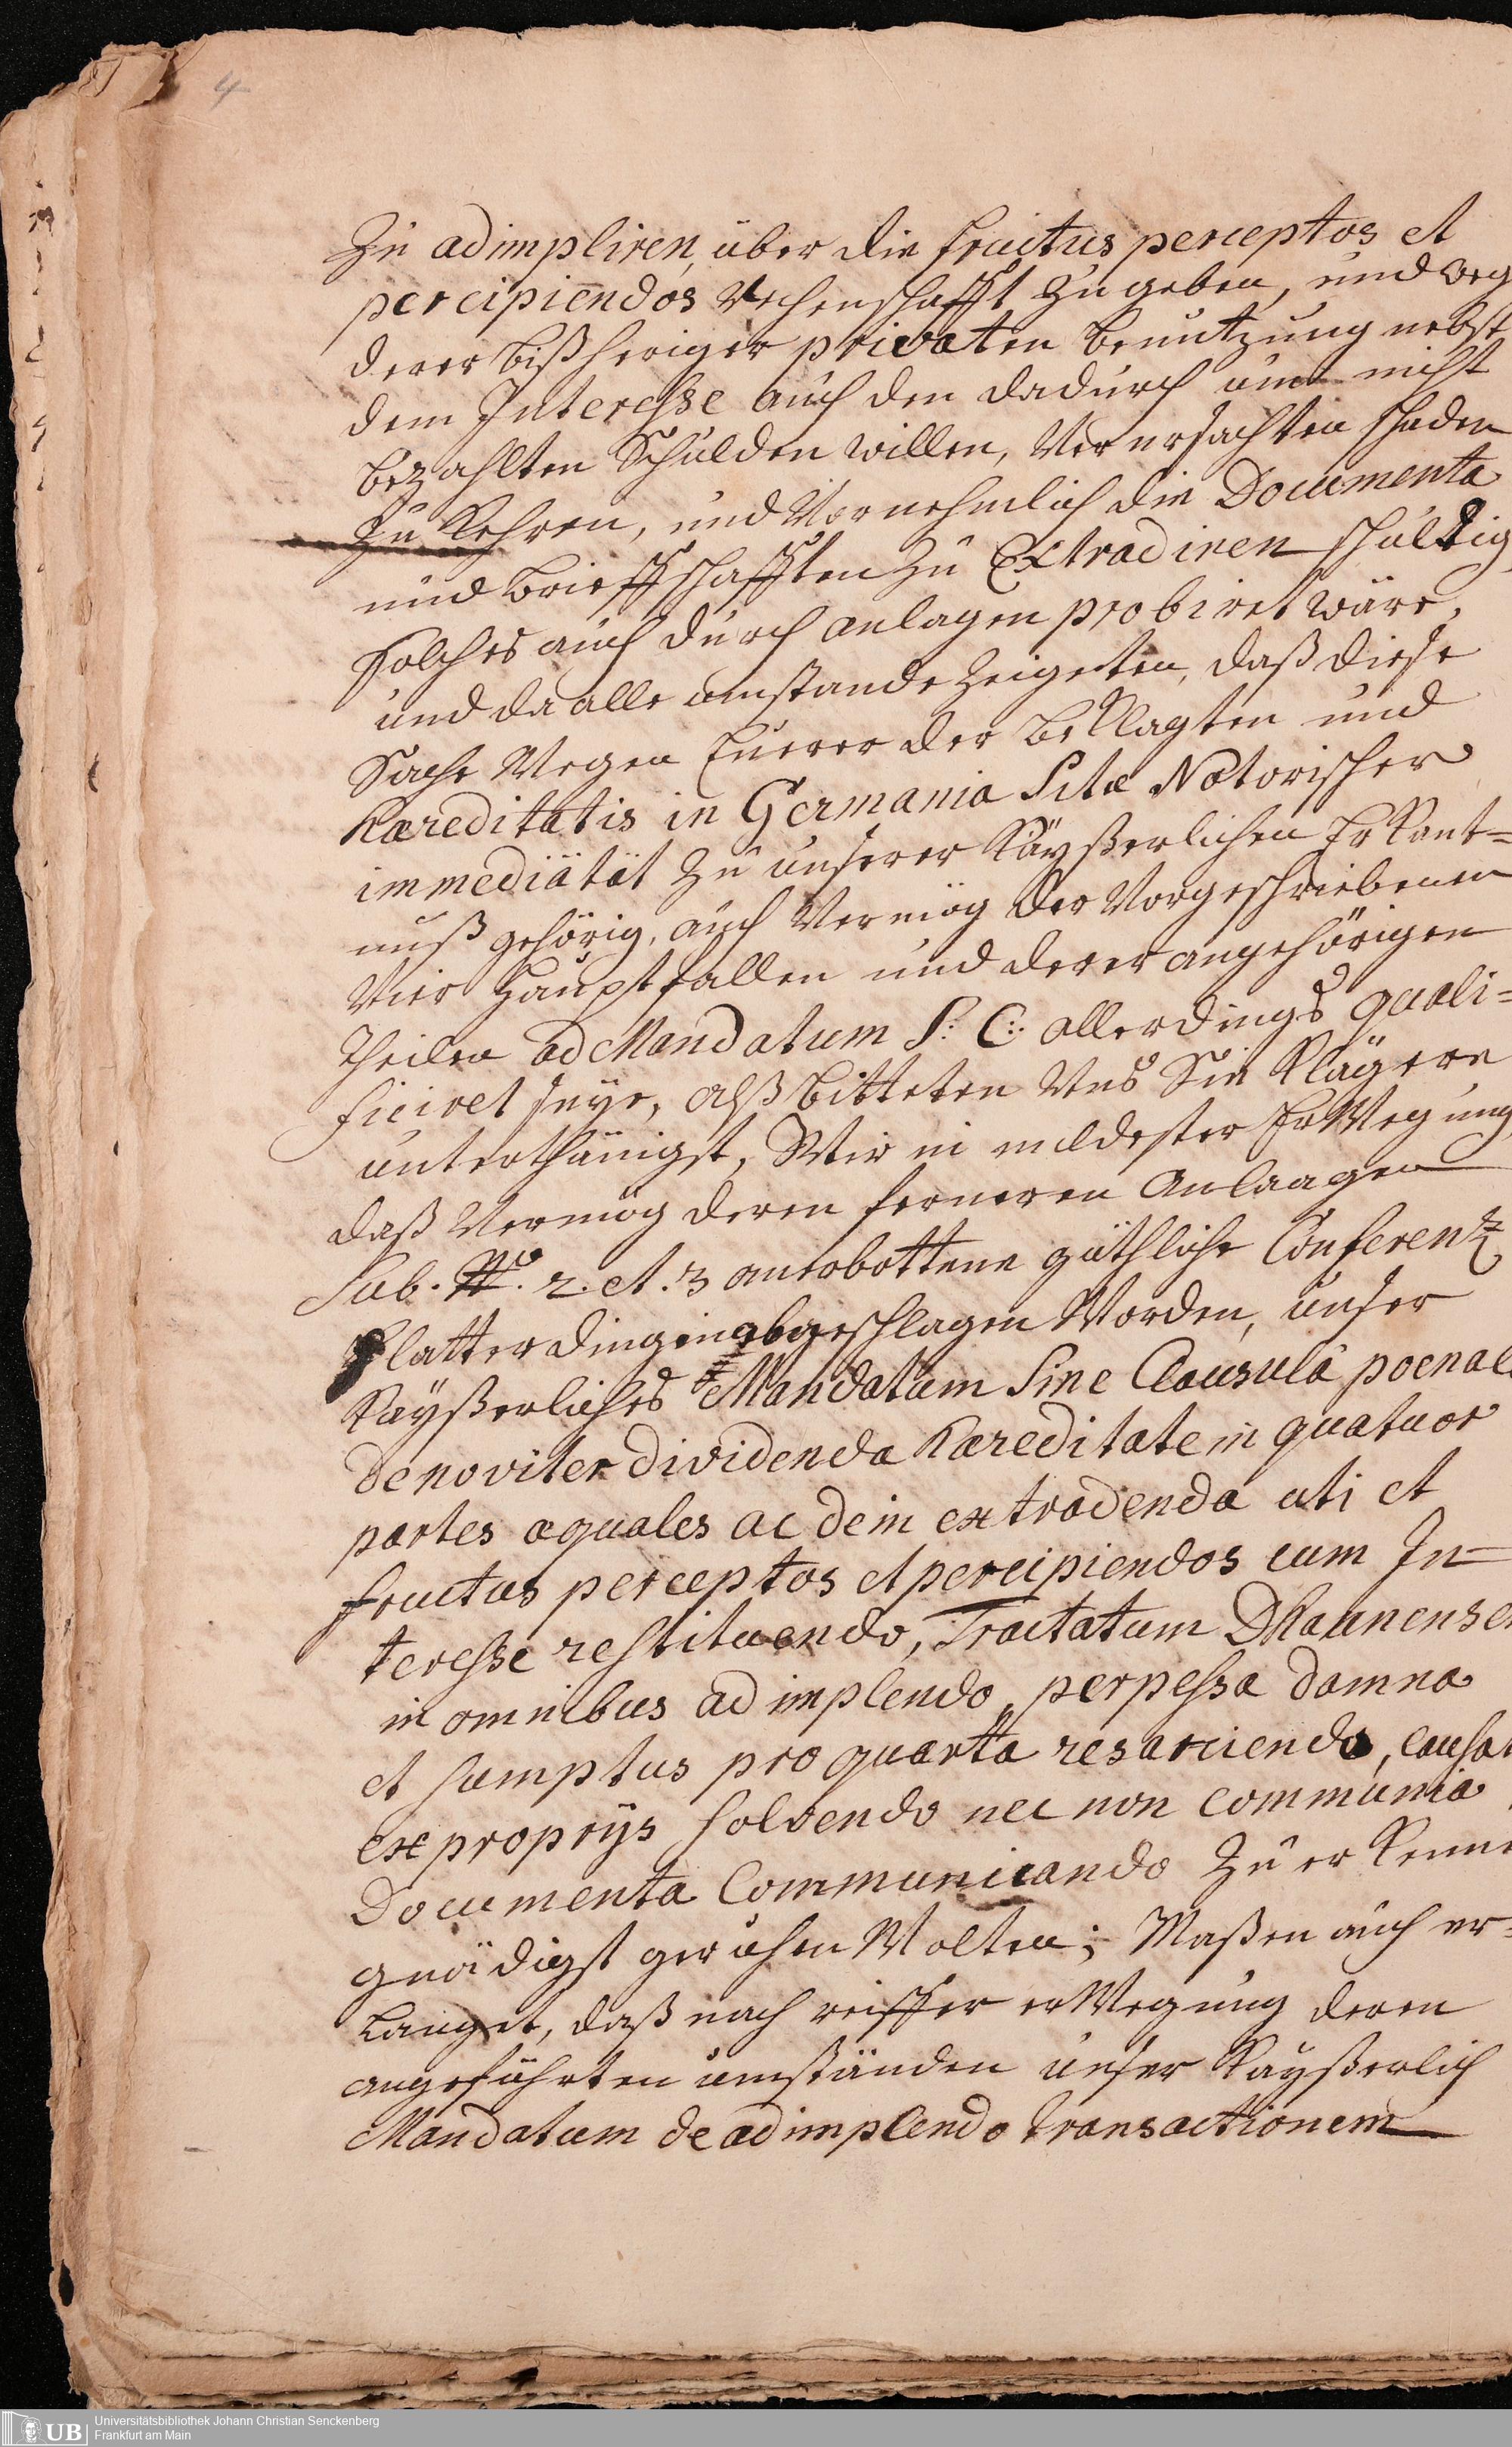 4
Zu adimpliren, über die fructus perceptos et
percipiendos Rechenschafft zu geben, und weg
derer bißheriger privaten Benutzung nebst
dem Interesse auch den dadurch um nicht
bezahlten Schulden willen, Verursachten schaden
zu Kehren, und Vornehmlich die Documenta
und Brieffschafften zu Extradiren schuldig,
solches auch durch anlagen probiret wäre,
und da alle umstande zeigeten, daß diese
Sache Wegen Euerer der Beklagten und
Hæreditatis in Germania Sitæ Notorischer
immediätät zu unserer Käyßerlichen Erkant=
nuß gehörig, auch Vermög der Vorgeschriebenen
Vier Hauptfällen und derer angehörigen
Theilen ad Mandatum S: C: allerdings quali=
ficiret seye, alß bitteten Uns Sie Klägere
unterthänigst, Wir in mildester ErWegung,
daß Vermög deren ferneren Anlaagen
Sub. No. 2. et. 3 anerbottene güthliche Conferentz
Platterdingen abgeschlagen Worden, unser
Kayßerliches Mandatum Sine Clausulâ poenal
de noviter dividenda hæreditate in quatuor
partes æquales ac dein extradenda uti et
fructus perceptos et percipiendos cum In=
teresse restituendo, Tractatum Dhaunensem
in omnibus adimplendo, perpessa damna
et sumptus pro quarta resarciendo, causat
ex propriis solvendo nec non communia
Documenta Communicando zu erkenne
gnädigst geruhen Wolten; Maßen auch er=
langet, daß nach reiffer erWegung deren
angeführten umständen unser Kayßerlich
Mandatum de adimplendo transactionem
Universitätsbibliothek Johann Christian Senckenberg
Frankfurt am Main
UB